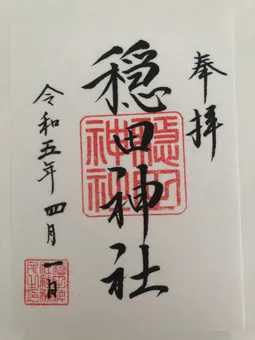 奉拝
穏田神社
令和五年 四月 一日
穏田神社